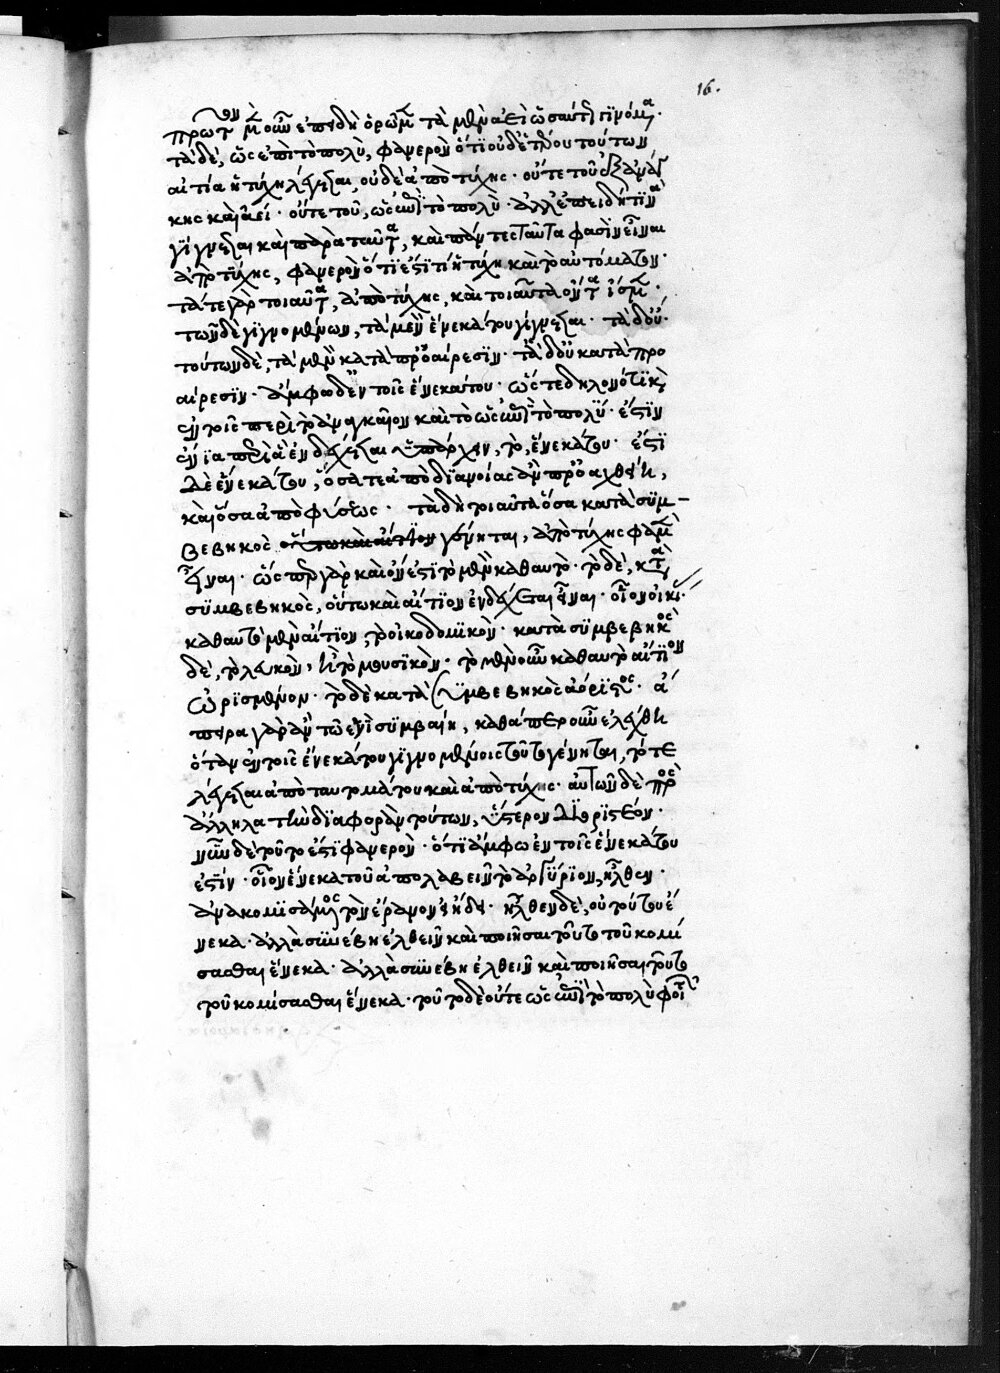 16.
πρῶτον μὲν οὖν ἐπειδὴ ὁρῶμεν τὰ μὲν ἀεὶ ὡσαύτως γινόμενα·
τὰ δὲ, ὡς ἐπιτοπολὺ, φανερὸν ὅτι οὐδετέρου τούτων
αἰτία ἡ τύχη λέγεται, οὐδὲ ἀπὸ τύχης· οὔτε τοῦ ἐξ ἀνάγ
κης καὶ ἀεί· οὔτε τοῦ, ὡς ἐπὶ τὸ πολὺ· ἀλλ' ἐπειδή τινα
γίγνεται καὶ παρὰ ταῦτα, καὶ πάντες ταῦτα φασὶν εἶναι
ἀπὸ τύχης, φανερὸν ὅτι ἐστί τι ἡ τύχη καὶ τὸ αὐτόματον·
τά τε γὰρ τοιαῦτα, ἀπὸ τύχης, καὶ τοιαῦτα ὄντα ἴσμεν·
τῶν δὲ γιγνομένων, τὰ μὲν ἕνεκά του γίγνεται· τὰ δ' οὔ·
τούτων δὲ, τὰ μὲν κατὰ προαίρεσιν· τὰ δ' οὐ κατὰ προ
αίρεσιν· ἄμφω δ' ἐν τοῖς ἕνεκα του· ὥστε δῆλον ὅτι καὶ
ἐν τοῖς περὶ τὸ ἀναγκαῖον καὶ τὸ ὡς ἐπὶ τὸ πολὺ· ἔστιν
ἔνια περὶ ἃ ἐνδέχεται ὑπάρχειν, τὸ, ἕνεκά του· ἔστι
δὲ ἕνεκά του, ὅσα τε ἀπὸ διανοίας ἂν πραχθείη,
καὶ ὅσα ἀπὸ φύσεως· τὰ δὴ τοιαῦτα ὅσα κατὰ συμ-
βεβηκὸς οὕτω καὶ αἴτιον γένηται, ἀπὸ τύχης φαμὲν
εἶναι· ὥσπερ γὰρ καὶ ὄν ἐστι τὸ μὲν καθ' αὑτὸ· τὸ δὲ, κατὰ
συμβεβηκὸς, οὕτω καὶ αἴτιον ἐνδέχεται εἶναι· οἷον οἰκίας
καθ' αὑτὸ μὲν αἴτιον, τὸ οἰκοδομικὸν· κατὰ συμβεβηκὸς
δὲ, τὸ λευκὸν, ἢ τὸ μουσικὸν· τὸ μὲν οὖν καθ' αὑτὸ αἴτιον
ὡρισμένον· τὸ δὲ κατὰ συμβεβηκὸς ἀόριστος· ἄ
πειρα γὰρ ἂν τῷ ἑνὶ συμβαίη, καθάπερ οὖν ἐλέχθη
ὅταν ἐν τοῖς ἕνεκά του γιγνομένοις τοῦτο γένηται, τότε
λέγεται ἀπὸ ταυτομάτου καὶ ἀπὸ τύχης· αὐτῶν δὲ πρὸς
ἄλληλα τὴν διαφορὰν τούτων, ὕστερον διοριστέον·
νῦν δὲ τοῦτο ἐστὶ φανερὸν· ὅτι ἄμφω ἐν τοῖς ἕνεκά του
ἐστίν· οἷον ἕνεκα τοῦ ἀπολαβεῖν τὸ ἀργύριον, ἦλθεν·
ἀνακομισάμενος τὸν ἔρανον ᾔδει· ἦλθεν δὲ, οὐ τούτου ἕ
νεκα· ἀλλὰ συνέβη ἐλθεῖν καὶ ποιῆσαι τοῦτο τοῦ κομί
σασθαι ἕνεκα· ἀλλὰ συνέβη ἐλθεῖν καὶ ποιῆσαι τοῦτο
τοῦ κομίσασθαι ἕνεκα· τοῦτο δὲ οὔτε ὡς ἐπὶ τὸ πολὺ φοιτ